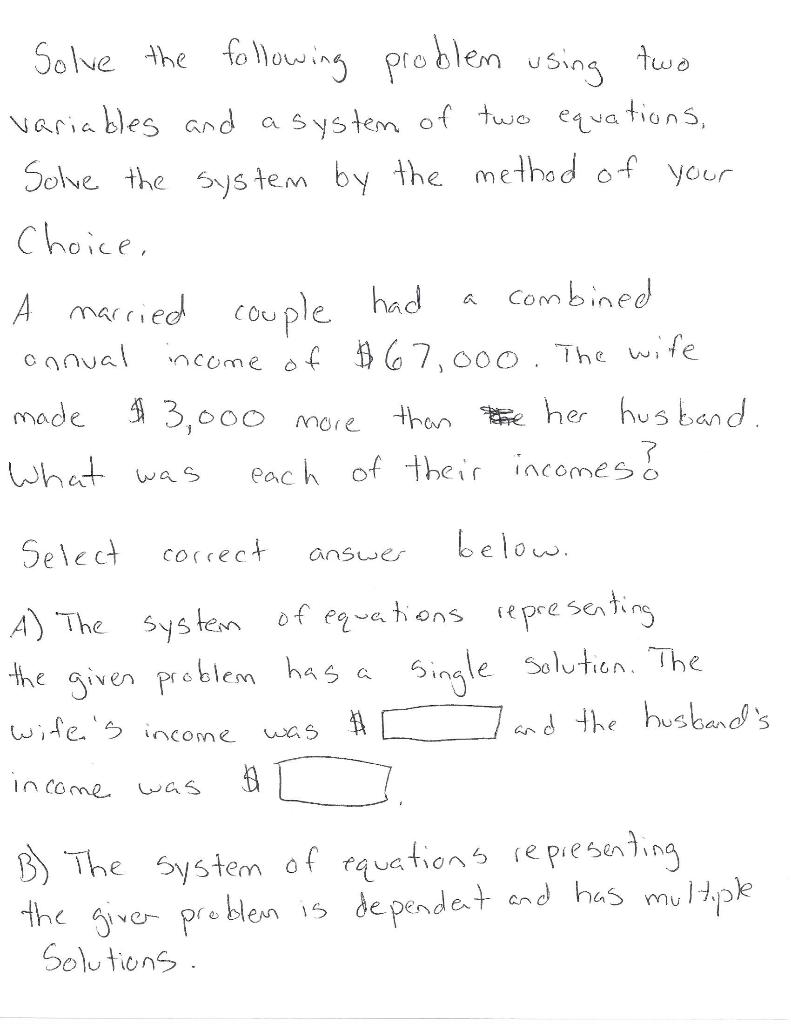 Solve the following problem using two
variables and a system of two equations.
Solve the system by the method of your
Choice.
A married couple had a combined
annual income of $67,000. The wife
made $3,000 more than her husband.
What was each of their incomes?
Select correct answer below.
A) The system of equations representing
the given problem has a single solution. The
wife's income was $ and the husband's
income was $ .
B) The system of equations representing
the given problem is dependent and has multiple
Solutions.